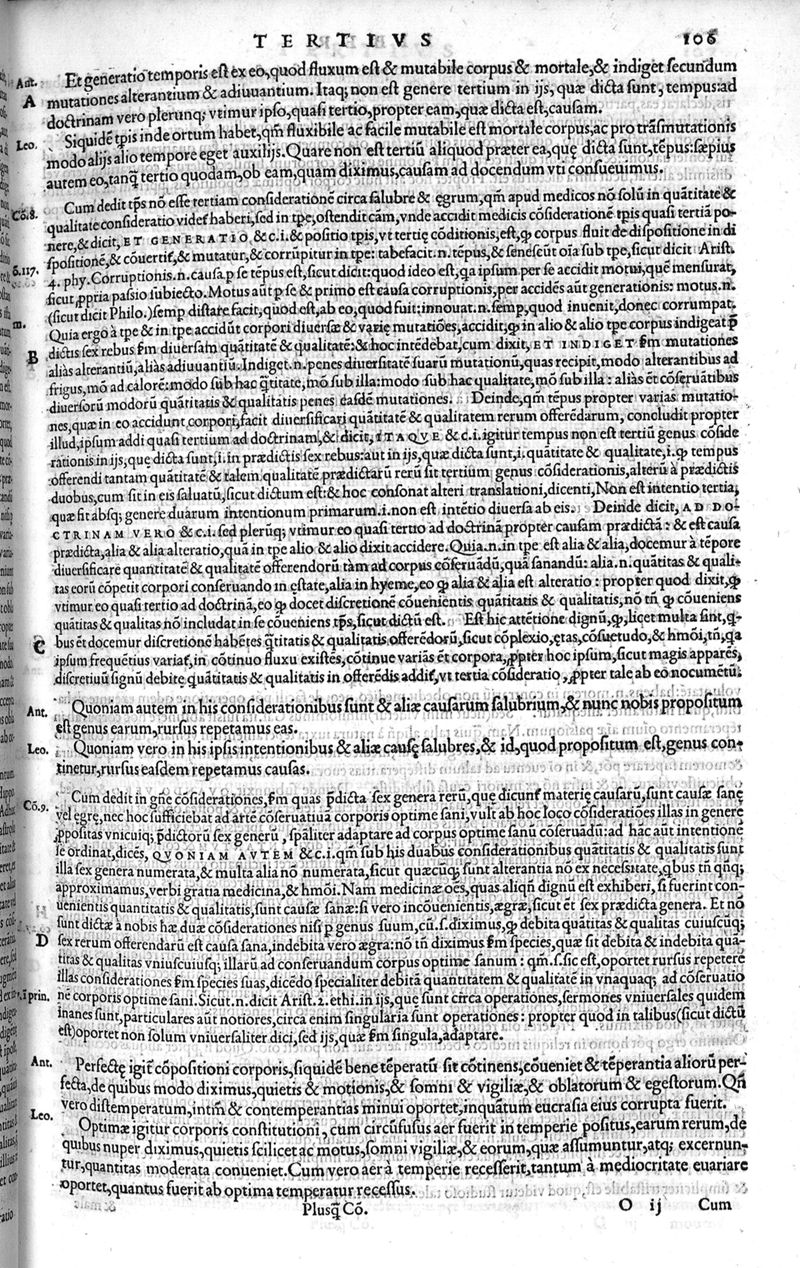 TERTIVS 106
Ant. Et generatio temporis est ex eo, quod fluxum est & mutabile corpus & mortale, & indiget secundum
A mutationes alterantium & adiuuantium. Itaq; non est genere tertium in ijs, quæ dicta sunt, tempus: ad
doctrinam vero plerunq; vtimur ipso, quasi tertio, propter eam, quæ dicta est, causam.
Leo. Siquidē tp̄is inde ortum habet, qm̄ fluxibile ac facile mutabile est mortale corpus, ac pro trāsmutationis
modo alijs alio tempore eget auxilijs. Quare non est tertiū aliquod præter ea, quę dicta sunt, tēpus: sæpius
autem eo, tanq̄ tertio quodam, ob eam, quam diximus, causam ad docendum vti consueuimus.
Cō.8. Cum dedit tp̄s nō esse tertiam considerationē circa salubre & ęgrum, qm̄ apud medicos nō solū in quātitate &
qualitate consideratio videt haberi, sed in tpe, ostendit cām, vnde accidit medicis cōsiderationē tpis quasi tertiā po-
nere, & dicit, ET GENERATIO & c. i. & positio tpis, vt tertię cōditionis, est, ꝙ corpus fluit de dispositione in di
spositionē, & cōuertit, & mutatur, & corrūpitur in tpe: tabefacit .n. tēpus, & senescūt oīa sub tpe, sicut dicit Arist.
6.117. 4. phy. Corruptionis .n. causa p se tēpus est, sicut dicit: quod ideo est, qa ipsum per se accidit motui, quē mensurat,
sicut ꝓpria passio subiecto. Motus aūt p se & primo est causa corruptionis, per accidēs aūt generationis: motus .n.
m. (sicut dicit Philo.) semp distare facit, quod est, ab eo, quod fuit: innouat .n. semp, quod inuenit, donec corrumpat.
Quia ergo à tpe & in tpe accidūt corpori diuersæ & varię mutatiōes, accidit, ꝙ in alio & alio tpe corpus indigeat p̄
B dictis sex rebus fm diuersam quātitatē & qualitatē: & hoc intēdebat, cum dixit, ET INDIGET fm mutationes
aliàs alterantiū, aliàs adiuuantiū. Indiget .n. penes diuersitatē suarū mutationū, quas recipit, modo alterantibus ad
frigus, mō ad calorē: modo sub hac q̄titate, mō sub illa: modo sub hac qualitate, mō sub illa: aliàs ēt cōseruātibus
diuersorū modorū quātitatis & qualitatis penes easdē mutationes. Deinde, qm̄ tēpus propter varias mutatio-
nes, quæ in eo accidunt corpori, facit diuersificari quātitatē & qualitatem rerum offerēdarum, concludit propter
illud, ipsum addi quasi tertium ad doctrinam, & dicit, ITAQVE & c. i. igitur tempus non est tertiū genus cōside
rationis in ijs, quę dicta sunt, i. in prædictis sex rebus: aut in ijs, quæ dicta sunt, i. quātitate & qualitate, i. ꝙ tempus
offerendi tantam quātitatē & talem qualitatē prædictarū rerū sit tertium genus cōsiderationis, alterū à prædictis
duobus, cum sit in eis saluatū, sicut dictum est: & hoc consonat alteri translationi, dicenti, Non est intentio tertia,
quæ sit absq; genere duarum intentionum primarum .i. non est intētio diuersa ab eis. Deinde dicit, AD DO-
CTRINAM VERO & c. i. sed plerūq; vtimur eo quasi tertio ad doctrinā propter causam prædictā: & est causa
prædicta, alia & alia alteratio, quā in tpe alio & alio dixit accidere. Quia .n. in tpe est alia & alia, docemur à tēpore
diuersificare quantitatē & qualitatē offerendorū tàm ad corpus cōseruādū, quā sanandū: alia .n. quātitas & quali-
tas eorū cōpetit corpori conseruando in ęstate, alia in hyeme, eo ꝙ alia & alia est alteratio: propter quod dixit, ꝙ
vtimur eo quasi tertio ad doctrinā, eo ꝙ docet discretionē cōuenientis quātitatis & qualitatis, nō tn̄ ꝙ cōueniens
quātitas & qualitas nō includat in se cōueniens tp̄s, sicut dictū est. Est hic attētione dignū, ꝙ, licet multa sint, q-
bus ēt docemur discretionē habētes q̄titatis & qualitatis offerēdorū, sicut cōplexio, ętas, cōsuetudo, & hmōi, tn̄, qa
C ipsum frequētius variat, in cōtinuo fluxu existēs, cōtinue variās ēt corpora, ꝓpter hoc ipsum, sicut magis apparēs,
discretiuū signū debitę quātitatis & qualitatis in offerēdis addit, vt tertia consideratio, ꝓpter tale ab eo nocumētū.
Ant. Quoniam autem in his considerationibus sunt & aliæ causarum salubrium, & nunc nobis propositum
est genus earum, rursus repetamus eas.
Leo. Quoniam vero in his ipsis intentionibus & aliæ causę salubres, & id, quod propositum est, genus con-
tinetur, rursus easdem repetamus causas.
Cō.9. Cum dedit in gn̄e cōsiderationes, fm quas p̄dicta sex genera rerū, quę dicunt materię causarū, sunt causæ sanę
vel egrę, nec hoc sufficiebat ad artē cōseruatiuā corporis optime sani, vult ab hoc loco cōsideratiōes illas in genere
ꝓpositas vnicuiq; p̄dictorū sex generū, spāliter adaptare ad corpus optime sanū cōseruādū: ad hāc aūt intentionē
se ordinat, dicēs, QVONIAM AVTEM & c. i. qm̄ sub his duabus considerationibus quātitatis & qualitatis sunt
illa sex genera numerata, & multa alia nō numerata, sicut quæcūq; sunt alterantia nō ex necessitate, qbus tn̄ qn̄q;
approximamus, verbi gratia medicina, & hmōi. Nam medicinæ oēs, quas aliqn̄ dignū est exhiberi, si fuerint con-
uenientis quantitatis & qualitatis, sunt causæ sanæ: si vero incōuenientis, ægræ, sicut ēt sex prædicta genera. Et nō
sunt dictæ à nobis hæ duæ cōsiderationes nisi p genus suum, cū .s. diximus, ꝙ debita quātitas & qualitas cuiuscūq;
D sex rerum offerendarū est causa sana, indebita vero ægra: nō tn̄ diximus fm species, quæ sit debita & indebita quā-
titas & qualitas vniuscuiusq; illarū ad conseruandum corpus optime sanum: qm̄ .s. sic est, oportet rursus repetere
illas considerationes fm species suas, dicēdo specialiter debitā quantitatem & qualitatē in vnaquaq; ad cōseruatio
à prin. nē corporis optime sani. Sicut .n. dicit Arist. 2. ethi. in ijs, quę sunt circa operationes, sermones vniuersales quidem
inanes sunt, particulares aut notiores, circa enim singularia sunt operationes: propter quod in talibus (sicut dictū
est) oportet non solum vniuersaliter dici, sed ijs, quæ fm singula, adaptare.
Ant. Perfectę igit cōpositioni corporis, siquidē bene tēperatū sit cōtinens, cōueniet & tēperantia aliorū per-
fecta, de quibus modo diximus, quietis & motionis, & somni & vigiliæ, & oblatorum & egestorum. Qn̄
vero distemperatum, intm̄ & contemperantias minui oportet, inquātum eucrasia eius corrupta fuerit.
Leo. Optimæ igitur corporis constitutioni, cum circūfusus aer fuerit in temperie positus, earum rerum, de
quibus nuper diximus, quietis scilicet ac motus, somni vigiliæ, & eorum, quæ assumuntur, atq; excernun-
tur, quantitas moderata conueniet. Cum vero aer à temperie recesserit, tantum à mediocritate euariare
oportet, quantus fuerit ab optima temperatur recessus.
Plusq̄ Cō. O ij Cum